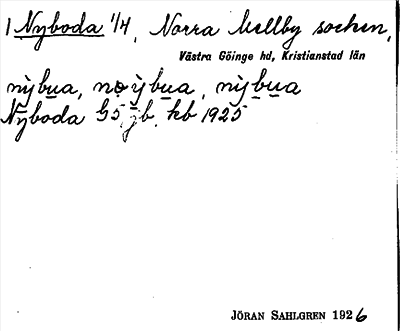 1 Nyboda 1/4, Norra Mellby socken,
Västra Göinge hd, Kristianstad län
nỳbua, nøỳbua, nỳbua
Nyboda G5, jb, kb 1925
JÖRAN SAHLGREN 1926